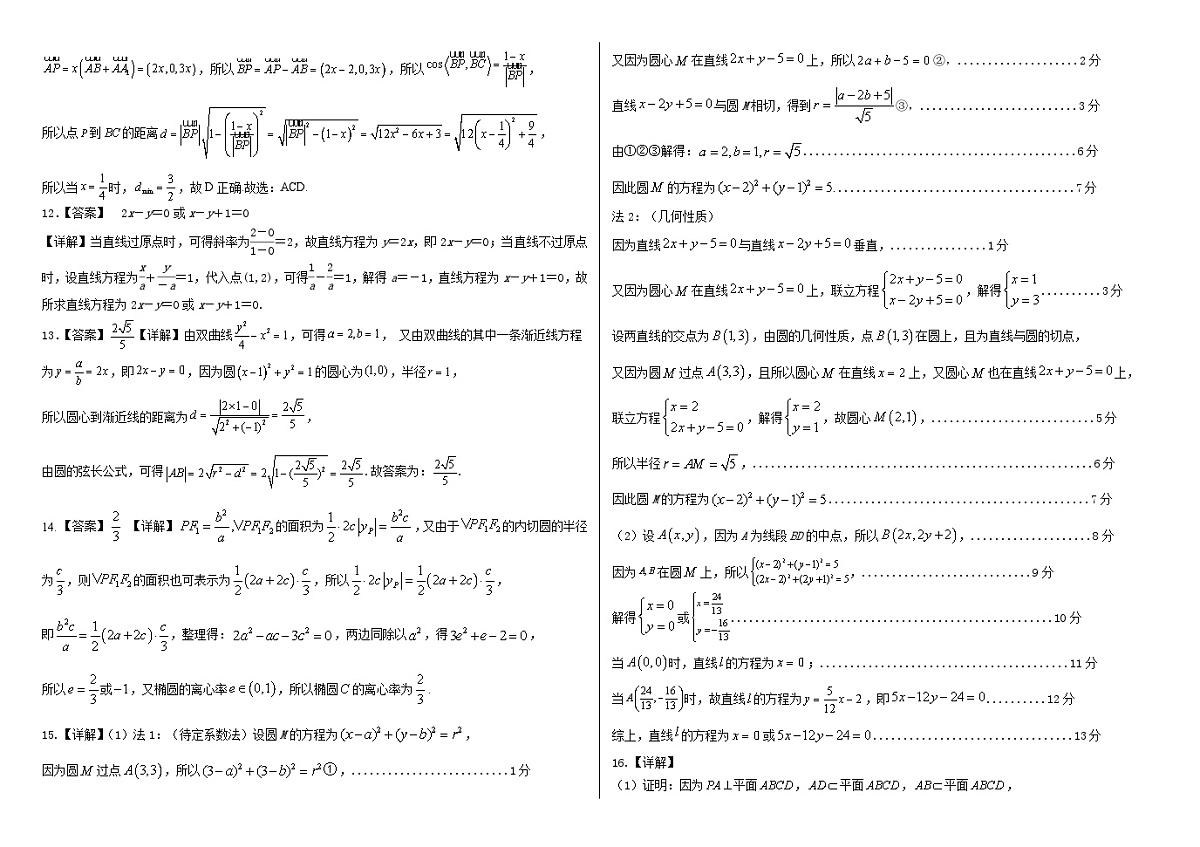 $\overrightarrow{AP}=x\left(\overrightarrow{AB}+\overrightarrow{AA_1}\right)=(2x,0,3x)$,所以$\overrightarrow{BP}=\overrightarrow{AP}-\overrightarrow{AB}=(2x-2,0,3x)$,所以$\cos\left\langle\overrightarrow{BP},\overrightarrow{BC}\right\rangle=\frac{1-x}{|\overrightarrow{BP}|}$,
所以点P到BC的距离$d=|\overrightarrow{BP}|\sqrt{1-\left(\frac{1-x}{|\overrightarrow{BP}|}\right)^2}=\sqrt{|\overrightarrow{BP}|^2-(1-x)^2}=\sqrt{12x^2-6x+3}=\sqrt{12\left(x-\frac{1}{4}\right)^2+\frac{9}{4}}$,
所以当$x=\frac{1}{4}$时,$d_{\min}=\frac{3}{2}$,故D正确 故选:ACD.
12.【答案】 2x-y=0或x-y+1=0
【详解】当直线过原点时,可得斜率为$\frac{2-0}{1-0}$=2,故直线方程为y=2x,即2x-y=0;当直线不过原点
时,设直线方程为$\frac{x}{a}+\frac{y}{-a}$=1,代入点(1,2),可得$\frac{1}{a}-\frac{2}{a}$=1,解得a=-1,直线方程为x-y+1=0,故
所求直线方程为2x-y=0或x-y+1=0.
13.【答案】$\frac{2\sqrt5}{5}$【详解】由双曲线$\frac{y^2}{4}-x^2=1$,可得$a=2,b=1$, 又由双曲线的其中一条渐近线方程
为$y=\frac{a}{b}=2x$,即$2x-y=0$,因为圆$(x-1)^2+y^2=1$的圆心为$(1,0)$,半径$r=1$,
所以圆心到渐近线的距离为$d=\frac{|2\times1-0|}{\sqrt{2^2+(-1)^2}}=\frac{2\sqrt5}{5}$,
由圆的弦长公式,可得$|AB|=2\sqrt{r^2-d^2}=2\sqrt{1-(\frac{2\sqrt5}{5})^2}=\frac{2\sqrt5}{5}$.故答案为:$\frac{2\sqrt5}{5}$.
14.【答案】$\frac{2}{3}$ 【详解】$PF_1=\frac{b^2}{a}$,$VPF_1F_2$的面积为$\frac{1}{2}\cdot2c|y_P|=\frac{b^2c}{a}$,又由于$VPF_1F_2$的内切圆的半径
为$\frac{c}{3}$,则$VPF_1F_2$的面积也可表示为$\frac{1}{2}(2a+2c)\cdot\frac{c}{3}$,所以$\frac{1}{2}\cdot2c|y_P|=\frac{1}{2}(2a+2c)\cdot\frac{c}{3}$,
即$\frac{b^2c}{a}=\frac{1}{2}(2a+2c)\cdot\frac{c}{3}$,整理得:$2a^2-ac-3c^2=0$,两边同除以$a^2$,得$3e^2+e-2=0$,
所以$e=\frac{2}{3}$或$-1$,又椭圆的离心率$e\in(0,1)$,所以椭圆C的离心率为$\frac{2}{3}$.
15.【详解】(1)法1:(待定系数法)设圆M的方程为$(x-a)^2+(y-b)^2=r^2$,
因为圆M过点$A(3,3)$,所以$(3-a)^2+(3-b)^2=r^2$①,..........................1分
又因为圆心M在直线$2x+y-5=0$上,所以$2a+b-5=0$②,....................2分
直线$x-2y+5=0$与圆M相切,得到$r=\frac{|a-2b+5|}{\sqrt5}$③,..........................3分
由①②③解得:$a=2,b=1,r=\sqrt5$.............................................6分
因此圆M的方程为$(x-2)^2+(y-1)^2=5$........................................7分
法2:(几何性质)
因为直线$2x+y-5=0$与直线$x-2y+5=0$垂直,................1分
又因为圆心M在直线$2x+y-5=0$上,联立方程$\begin{cases}2x+y-5=0\\x-2y+5=0\end{cases}$,解得$\begin{cases}x=1\\y=3\end{cases}$..........3分
设两直线的交点为$B(1,3)$,由圆的几何性质,点$B(1,3)$在圆上,且为直线与圆的切点,
又因为圆M过点$A(3,3)$,且所以圆心M在直线$x=2$上,又圆心M也在直线$2x+y-5=0$上,
联立方程$\begin{cases}x=2\\2x+y-5=0\end{cases}$,解得$\begin{cases}x=2\\y=1\end{cases}$,故圆心$M(2,1)$,...........................5分
所以半径$r=AM=\sqrt5$,........................................................6分
因此圆M的方程为$(x-2)^2+(y-1)^2=5$...........................................7分
(2)设$A(x,y)$,因为A为线段BD的中点,所以$B(2x,2y+2)$,....................8分
因为A,B在圆M上,所以$\begin{cases}(x-2)^2+(y-1)^2=5\\(2x-2)^2+(2y+1)^2=5\end{cases}$,............................9分
解得$\begin{cases}x=0\\y=0\end{cases}$或$\begin{cases}x=\frac{24}{13}\\y=-\frac{16}{13}\end{cases}$.....................................................10分
当$A(0,0)$时,直线$l$的方程为$x=0$;.........................................11分
当$A\left(\frac{24}{13},-\frac{16}{13}\right)$时,故直线$l$的方程为$y=\frac{5}{12}x-2$,即$5x-12y-24=0$..........12分
综上,直线$l$的方程为$x=0$或$5x-12y-24=0$.................................13分
16.【详解】
(1)证明:因为$PA\perp$平面$ABCD$,$AD\subset$平面$ABCD$,$AB\subset$平面$ABCD$,